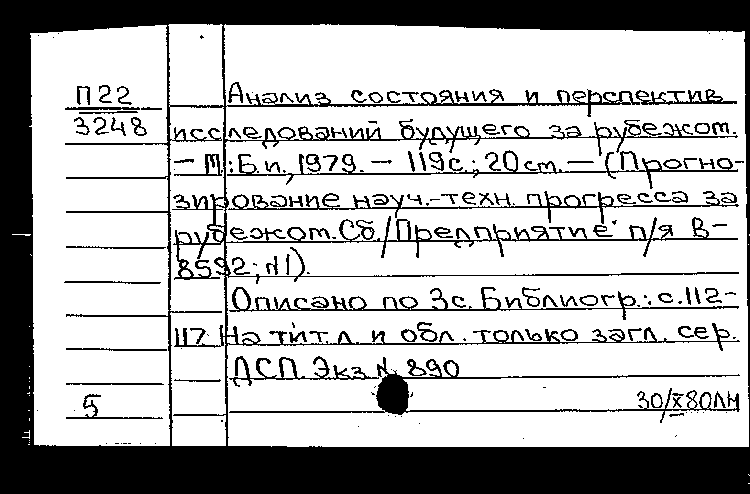 П22
3248
Анализ состояния и перспектив
исследований будущего за рубежом.
— М.: Б.и., 1979. — 119с.; 20см. — (Прогно-
зирование науч.-техн. прогресса за
рубежом. Сб./Предприятие п/я В-
8592; N1).
Описано по 3с. Библиогр.: с.112-
117. На тит.л. и обл. только загл. сер.
ДСП. Экз N 890
5
30/X80ЛН